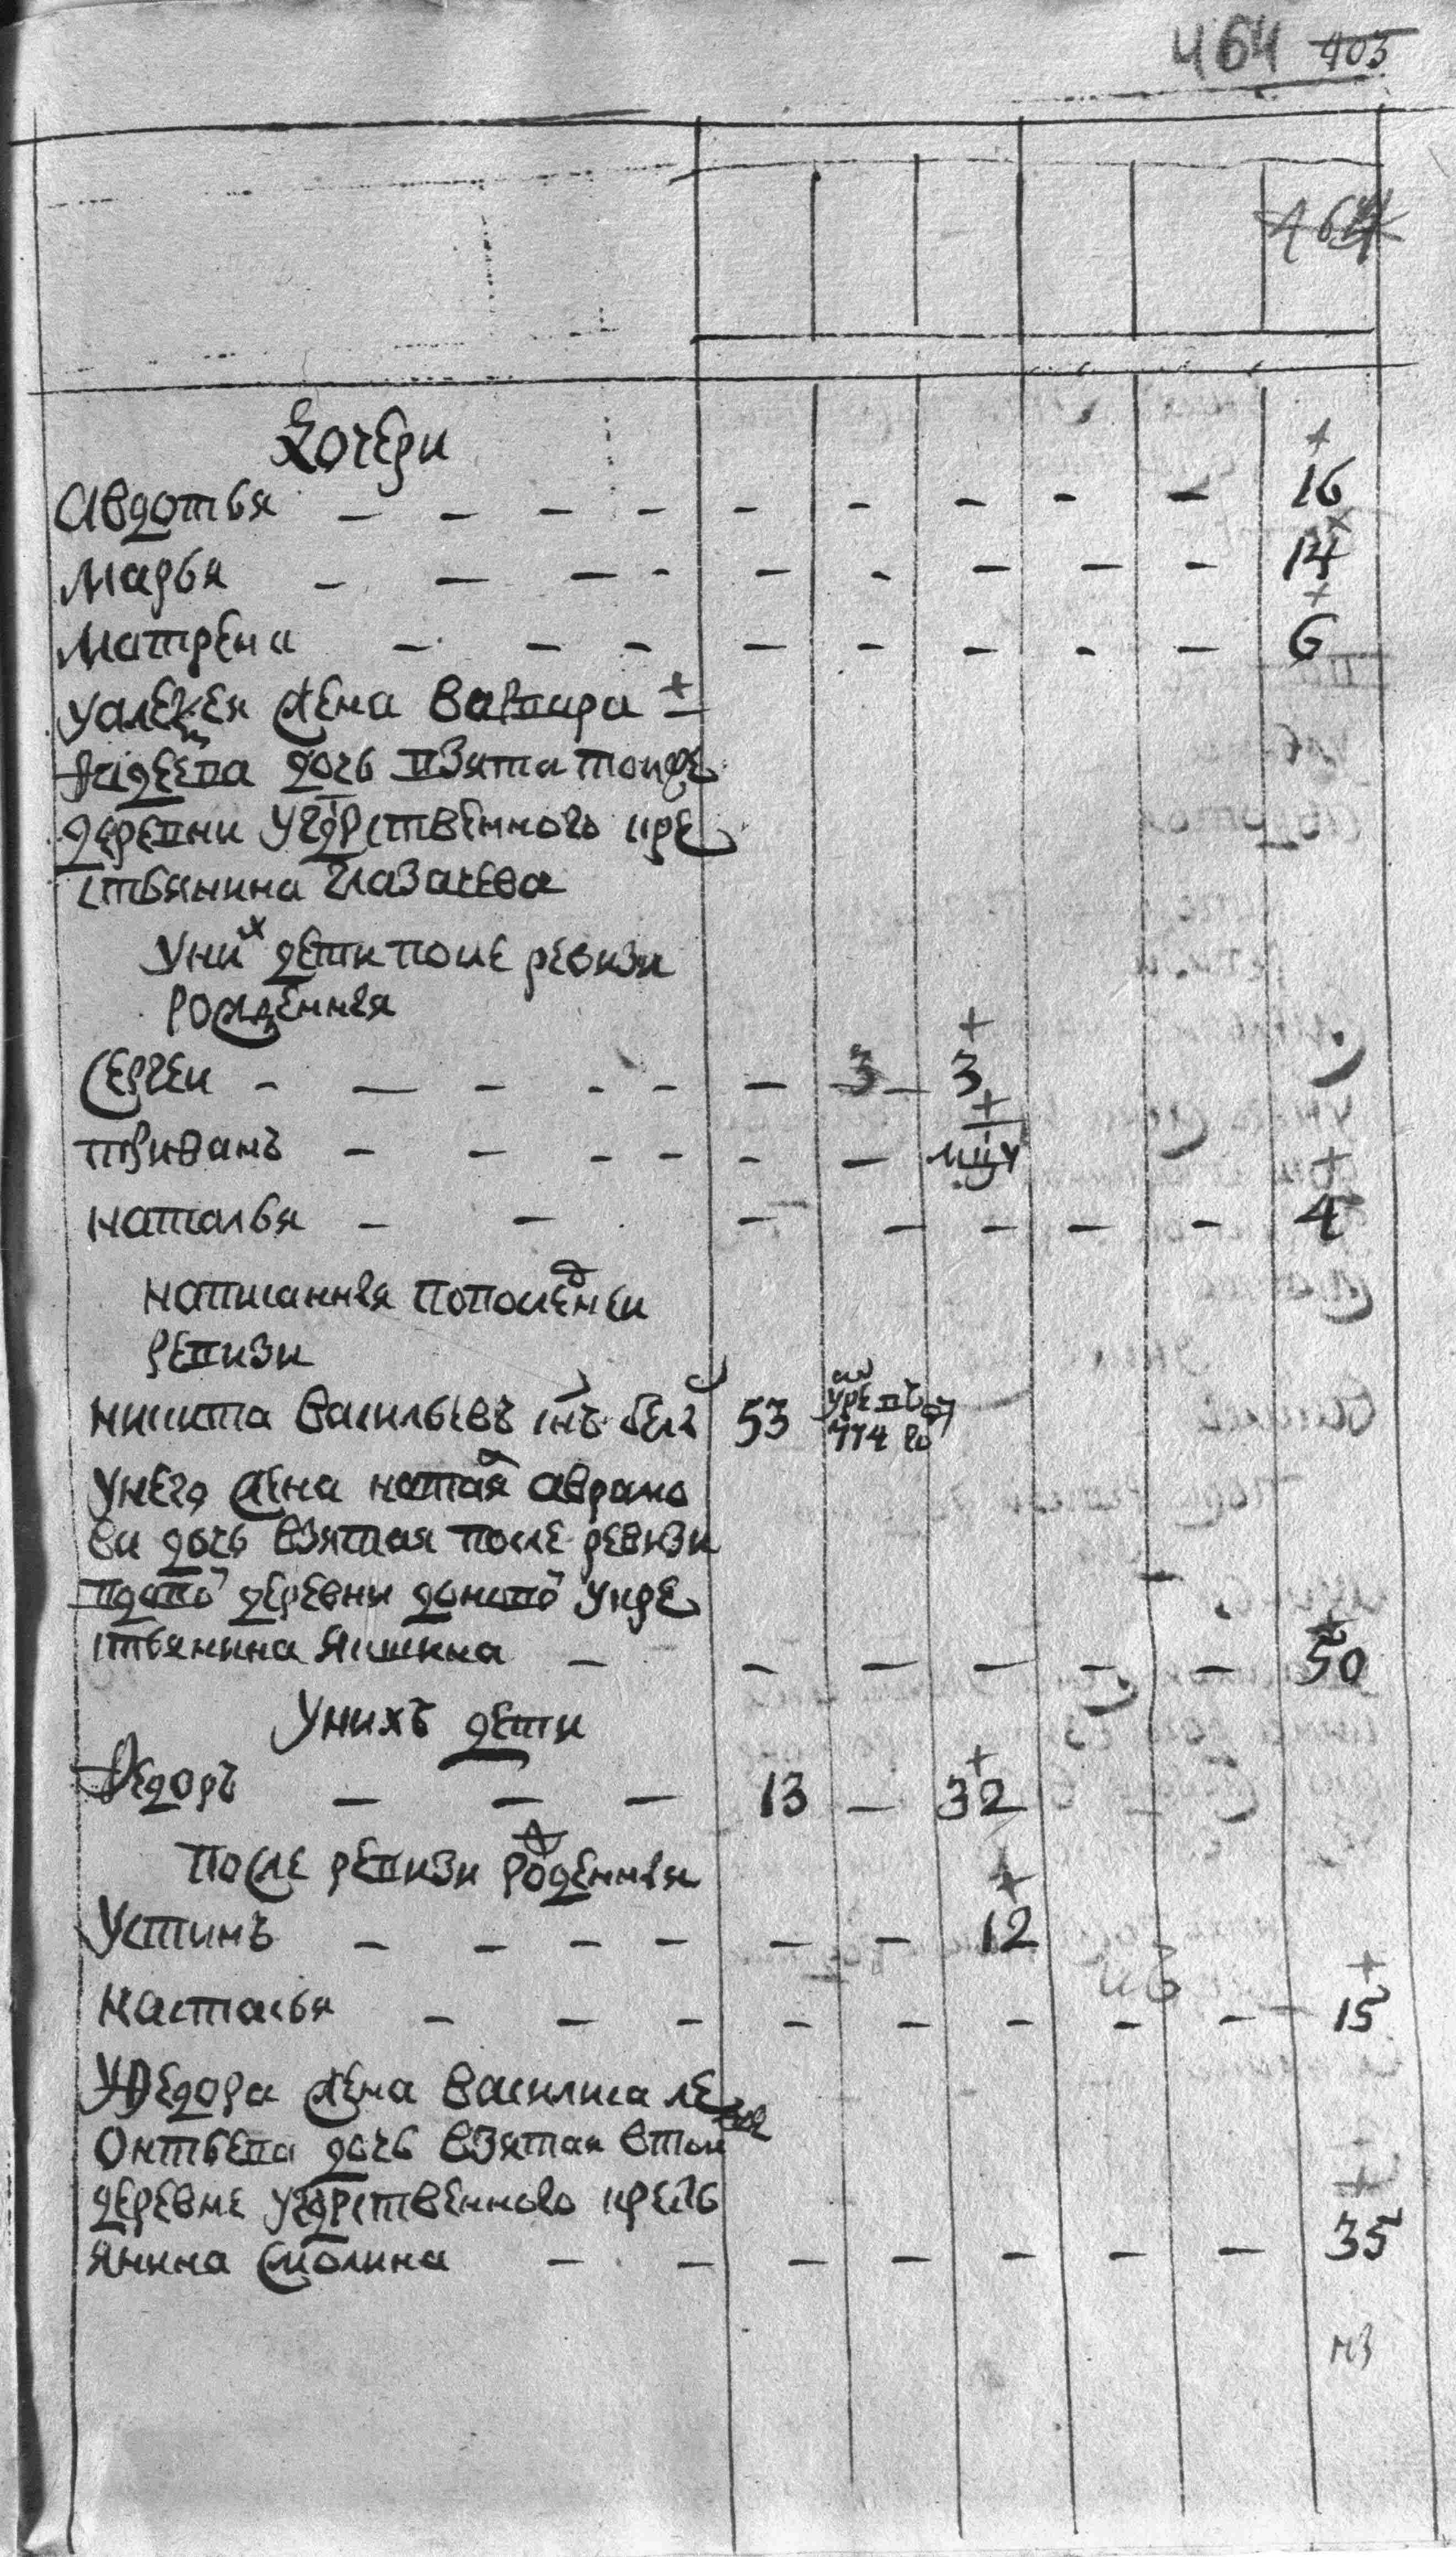 464 403
464
Дочери
Авдотья — — — — — — — — — 16
Марья — — — — — — — — — 14
Матрена — — — — — — — — 6
У Алексея жена Варвара
Фадеева дочь взята тоиже
деревни у гдрственного кре
стьянина Глазачева
У них дети после ревизи
рожденныя
Сергеи — — — — — — 3 — 3
Иванъ — — — — — —
Наталья — — — — — — — 4
Написанныя по последнеи
ревизи
Никита Васильевъ снъ 53 774 го
У него жена Наталя Аврамо
ва дочь взятая после ревизи
деревни у кре
стьянина Якшина — — — — — — 50
У нихъ дети
Федоръ — — — 13 — 32
После ревизи рожденныя
Устинъ — — — — — — 12
Настасья — — — — — — — — 15
У Федора жена Василиса Ле
онтьева дочь взятая в тои же
деревне у гдрственного кресть
янина Смолина — — — — — — — 35